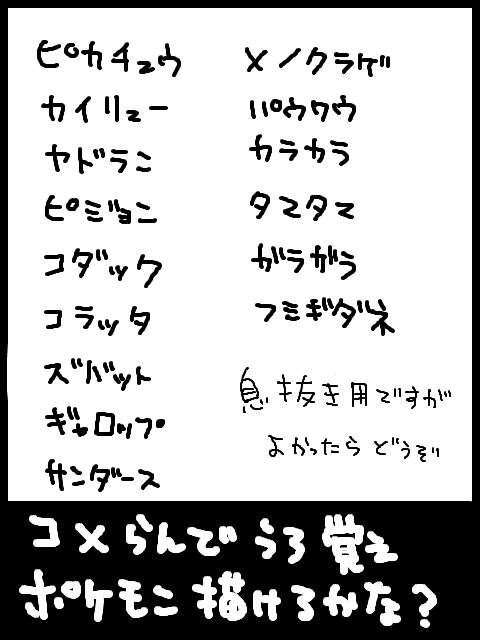 ピカチュウ
カイリュー
ヤドラン
ピジョン
コダック
コラッタ
ズバット
ギャロップ
サンダース
メノクラゲ
パウワウ
カラカラ
タマタマ
ガラガラ
フシギダネ
息抜き用ですが
よかったらどうぞ
コメらんでうろ覚え
ポケモン描けるかな?